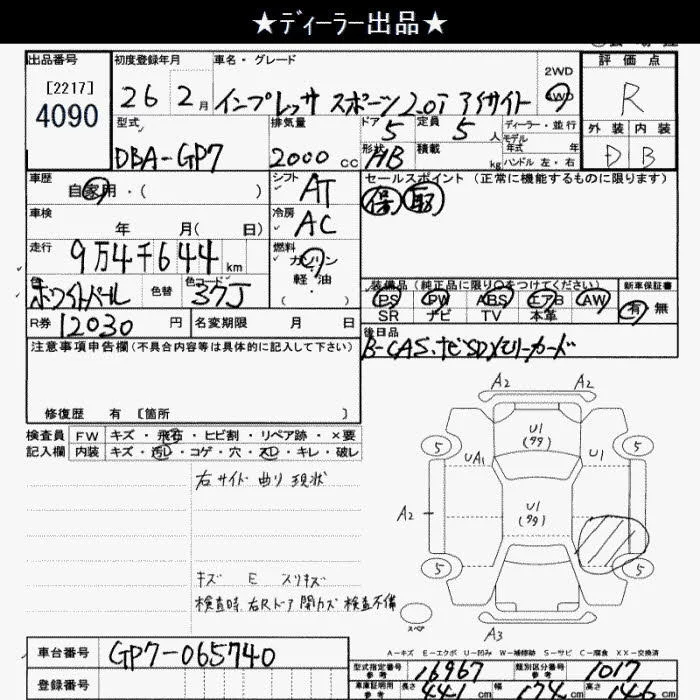 ★ディーラー出品★
出品番号 初度登録年月 車名・グレード 2WD 4WD 評価点
[2217] 4090 26 2月 インプレッサ スポーツ 2.0i アイサイト R
型式 排気量 ドア 5 定員 5人 ディーラー・並行 外装 内装
DBA-GP7 2000cc 形状 HB 積載 kg モデル年式 年 ハンドル 左・右 D B
車歴 自家用・( ) シフト AT セールスポイント (正常に機能するものに限ります)
車検 年 月( 日) 冷房 AC
走行 9万4千644km 燃料 ガソリン 軽油 ・( )
色 ホワイトパール 色替 色コード 37J 装備品(純正品に限り○をつけてください) 新車保証書
PS PW ABS エアB AW 有 無
SR ナビ TV 本革
R券 12030円 名変期限 月 日 後日品
B-CAS、ナビSDメモリーカード
注意事項申告欄(不具合内容等は具体的に記入して下さい)
修復歴 有 [箇所 ]
検査員 FW キズ・飛石・ヒビ割・リペア跡・×要
記入欄 内装 キズ・汚れ・コゲ・穴・スレ・キレ・破レ
右サイド曲り現状
キズ E スリキズ
検査時、右Rドア開カズ 検査不備
A2 A2
5 U1 (99) 5
UA1 U1
A2 U1 (99)
5 5
スペア A3
A-キズ E-エクボ U-凹み W-補修跡 S-サビ C-腐食 XX-交換済
車台番号 GP7-065740 型式指定番号 参考 16967 類別区分番号 参考 1017
登録番号 車庫証明用 参考 長さ 441cm 幅 174cm 高さ 146cm